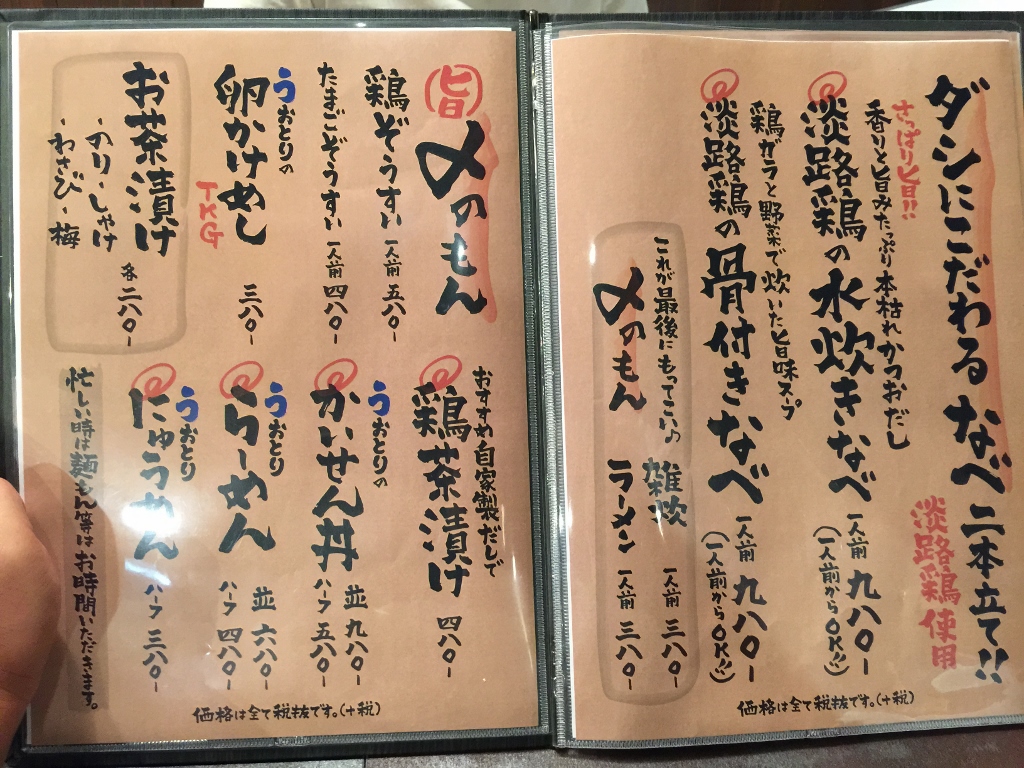 ダシにこだわるなべ二本立て!!
淡路鶏使用
さっぱり旨!!
香りと旨みたっぷり本枯れかつおだし
淡路鶏の水炊きなべ 一人前 九八〇-
(一人前からOK!!)
鶏ガラと野菜で炊いた旨味スープ
淡路鶏の骨付きなべ 一人前 九八〇-
(一人前からOK!!)
これが最後にもってこい♪
〆のもん
雑炊 一人前 三八〇-
ラーメン 一人前 三八〇-
価格は全て税抜です。(+税)
旨 〆のもん
鶏ぞうすい 一人前 五八〇-
たまごぞうすい 一人前 四八〇-
うおとりの
卵かけめし 三八〇-
TKG
お茶漬け
-のり-しゃけ
-わさび-梅
各 二八〇-
おすすめ自家製だしで
鶏茶漬け 四八〇-
うおとりの
かいせん丼 並 九八〇-
ハーフ 五八〇-
うおとり
らーめん 並 六八〇-
ハーフ 四八〇-
うおとり
にゅうめん ハーフ 三八〇-
忙しい時は麺もん等はお時間いただきます。
価格は全て税抜です。(+税)